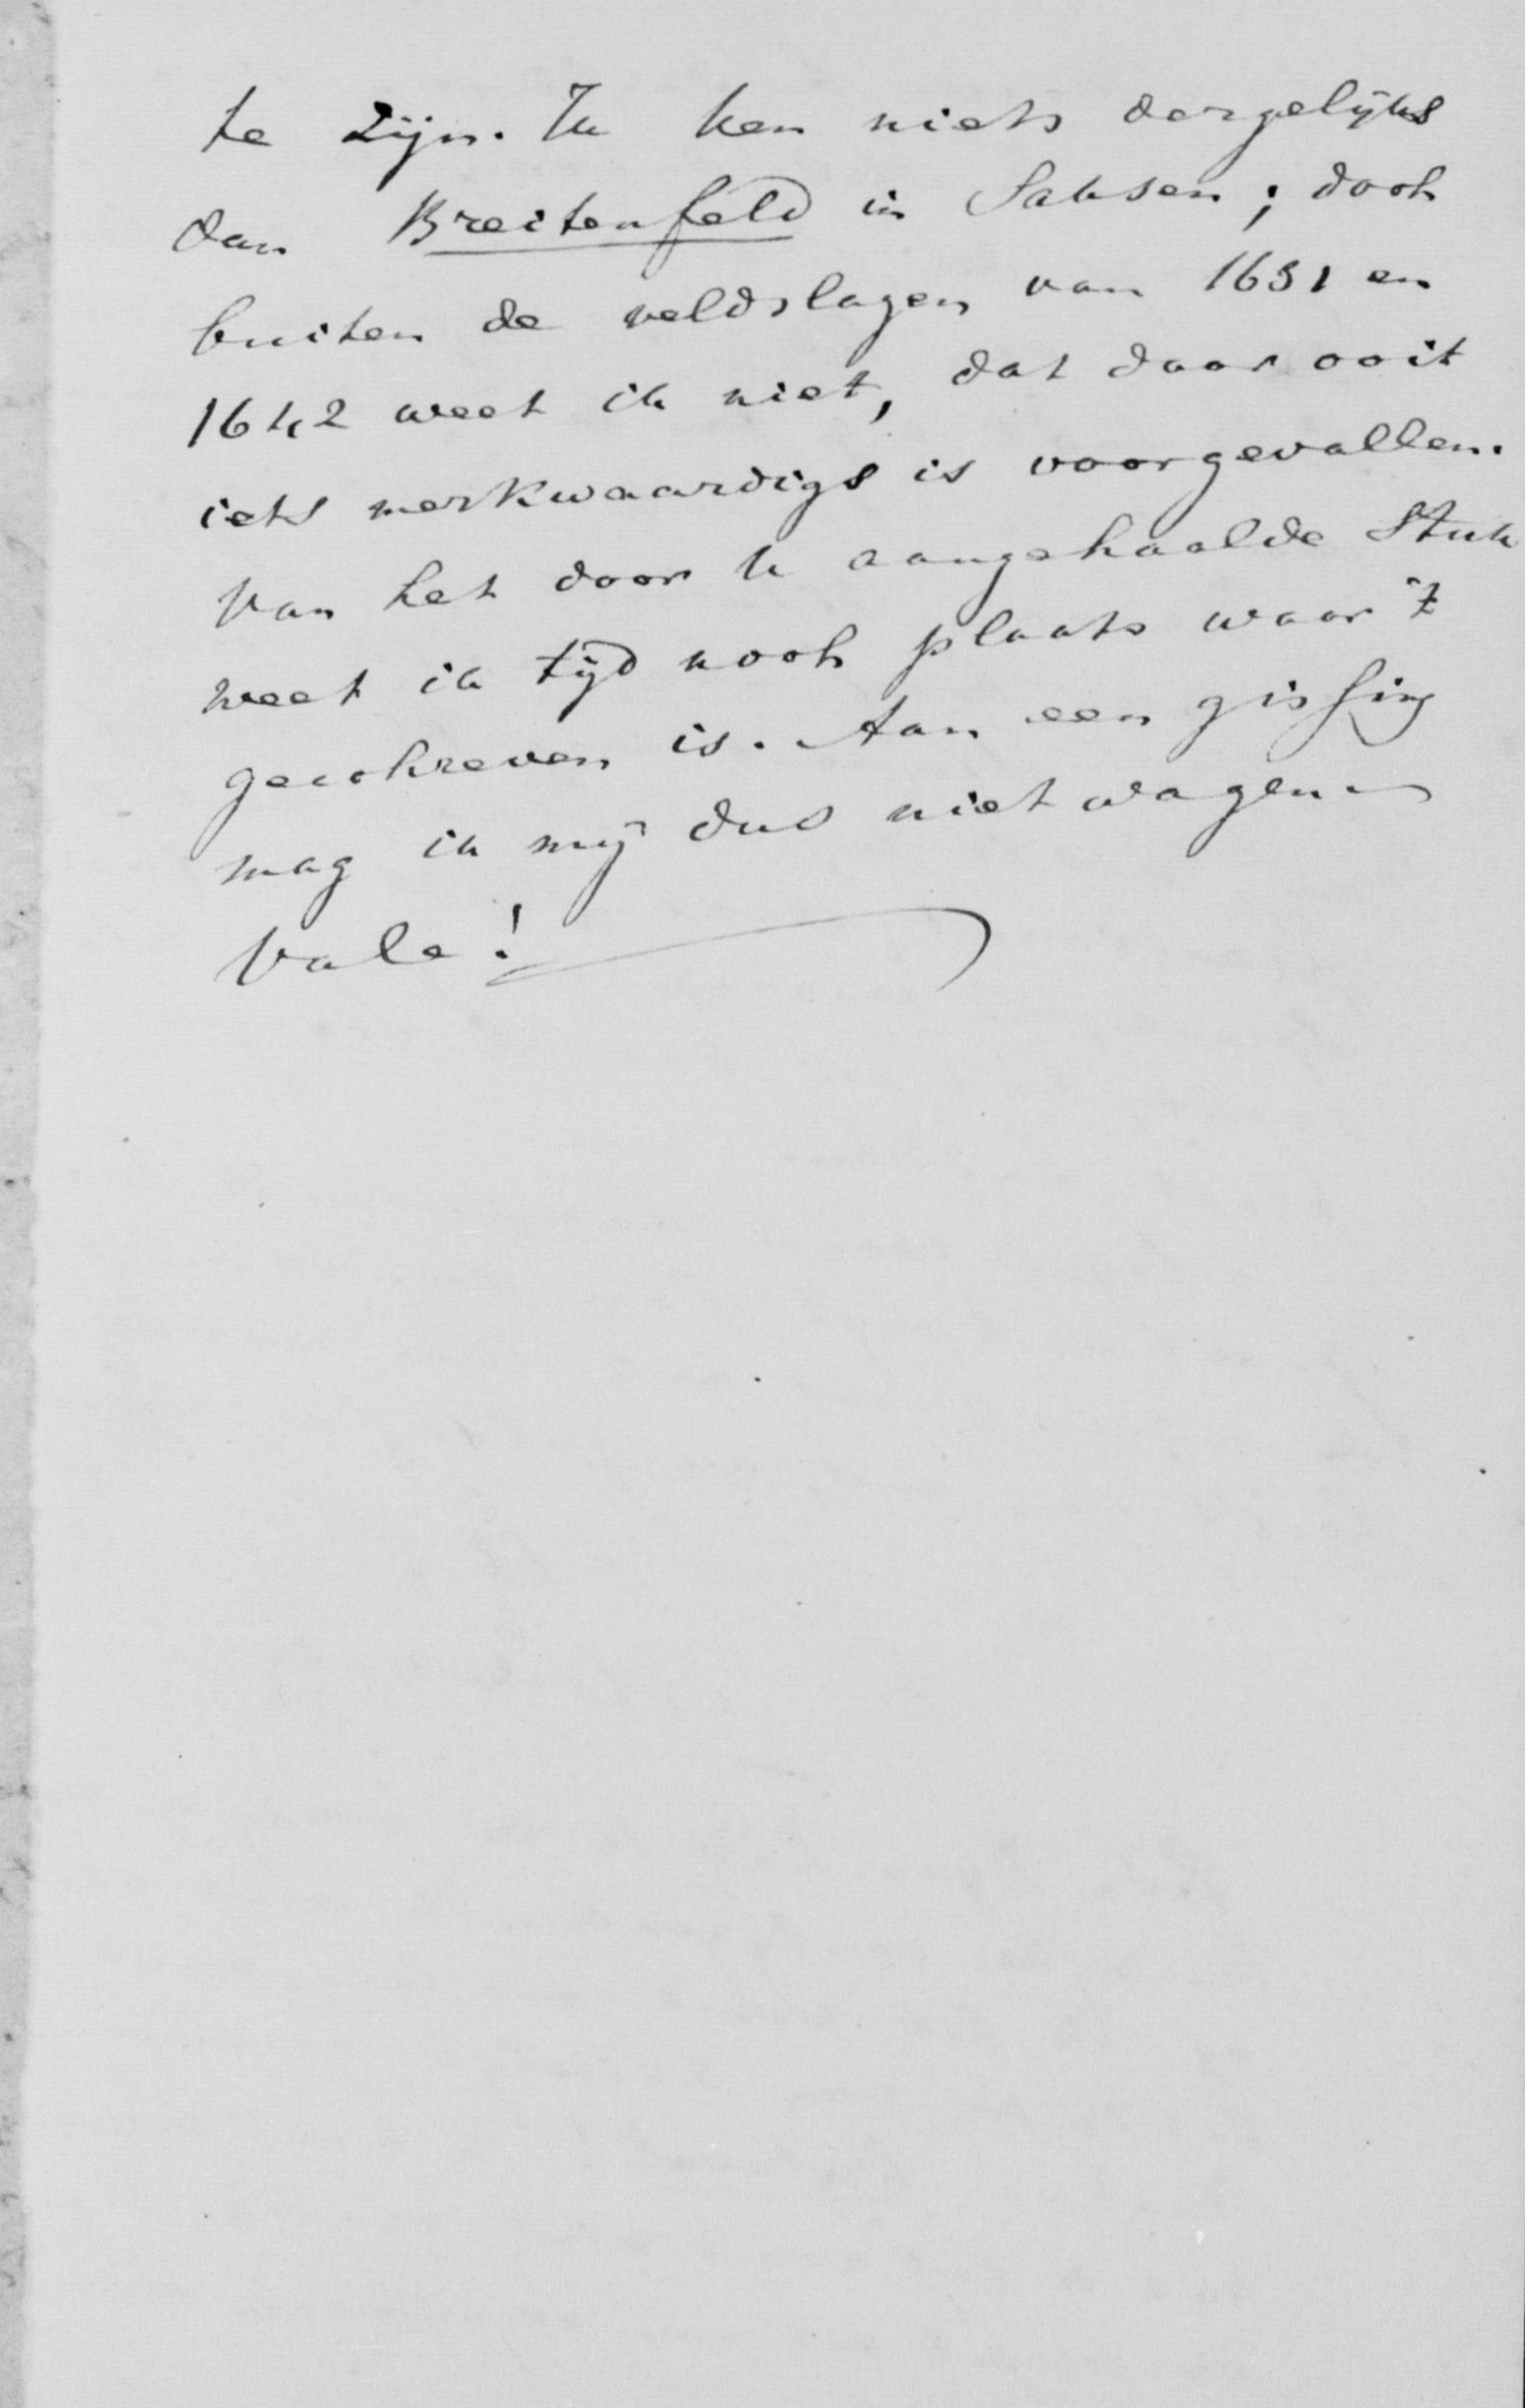 te zijn. Ik ken niets dergelijks
dan Breitenfeld in Saksen; doch
buiten de veldslagen van 1631 en
1642 weet ik niet, dat daar ooit
iets merkwaardigs is voorgevallen.
Van het door U aangehaalde Stuk
weet ik tijd noch plaats waar 't
geschreven is. Aan een gissing
mag ik mij dus niet wagen
Vale!